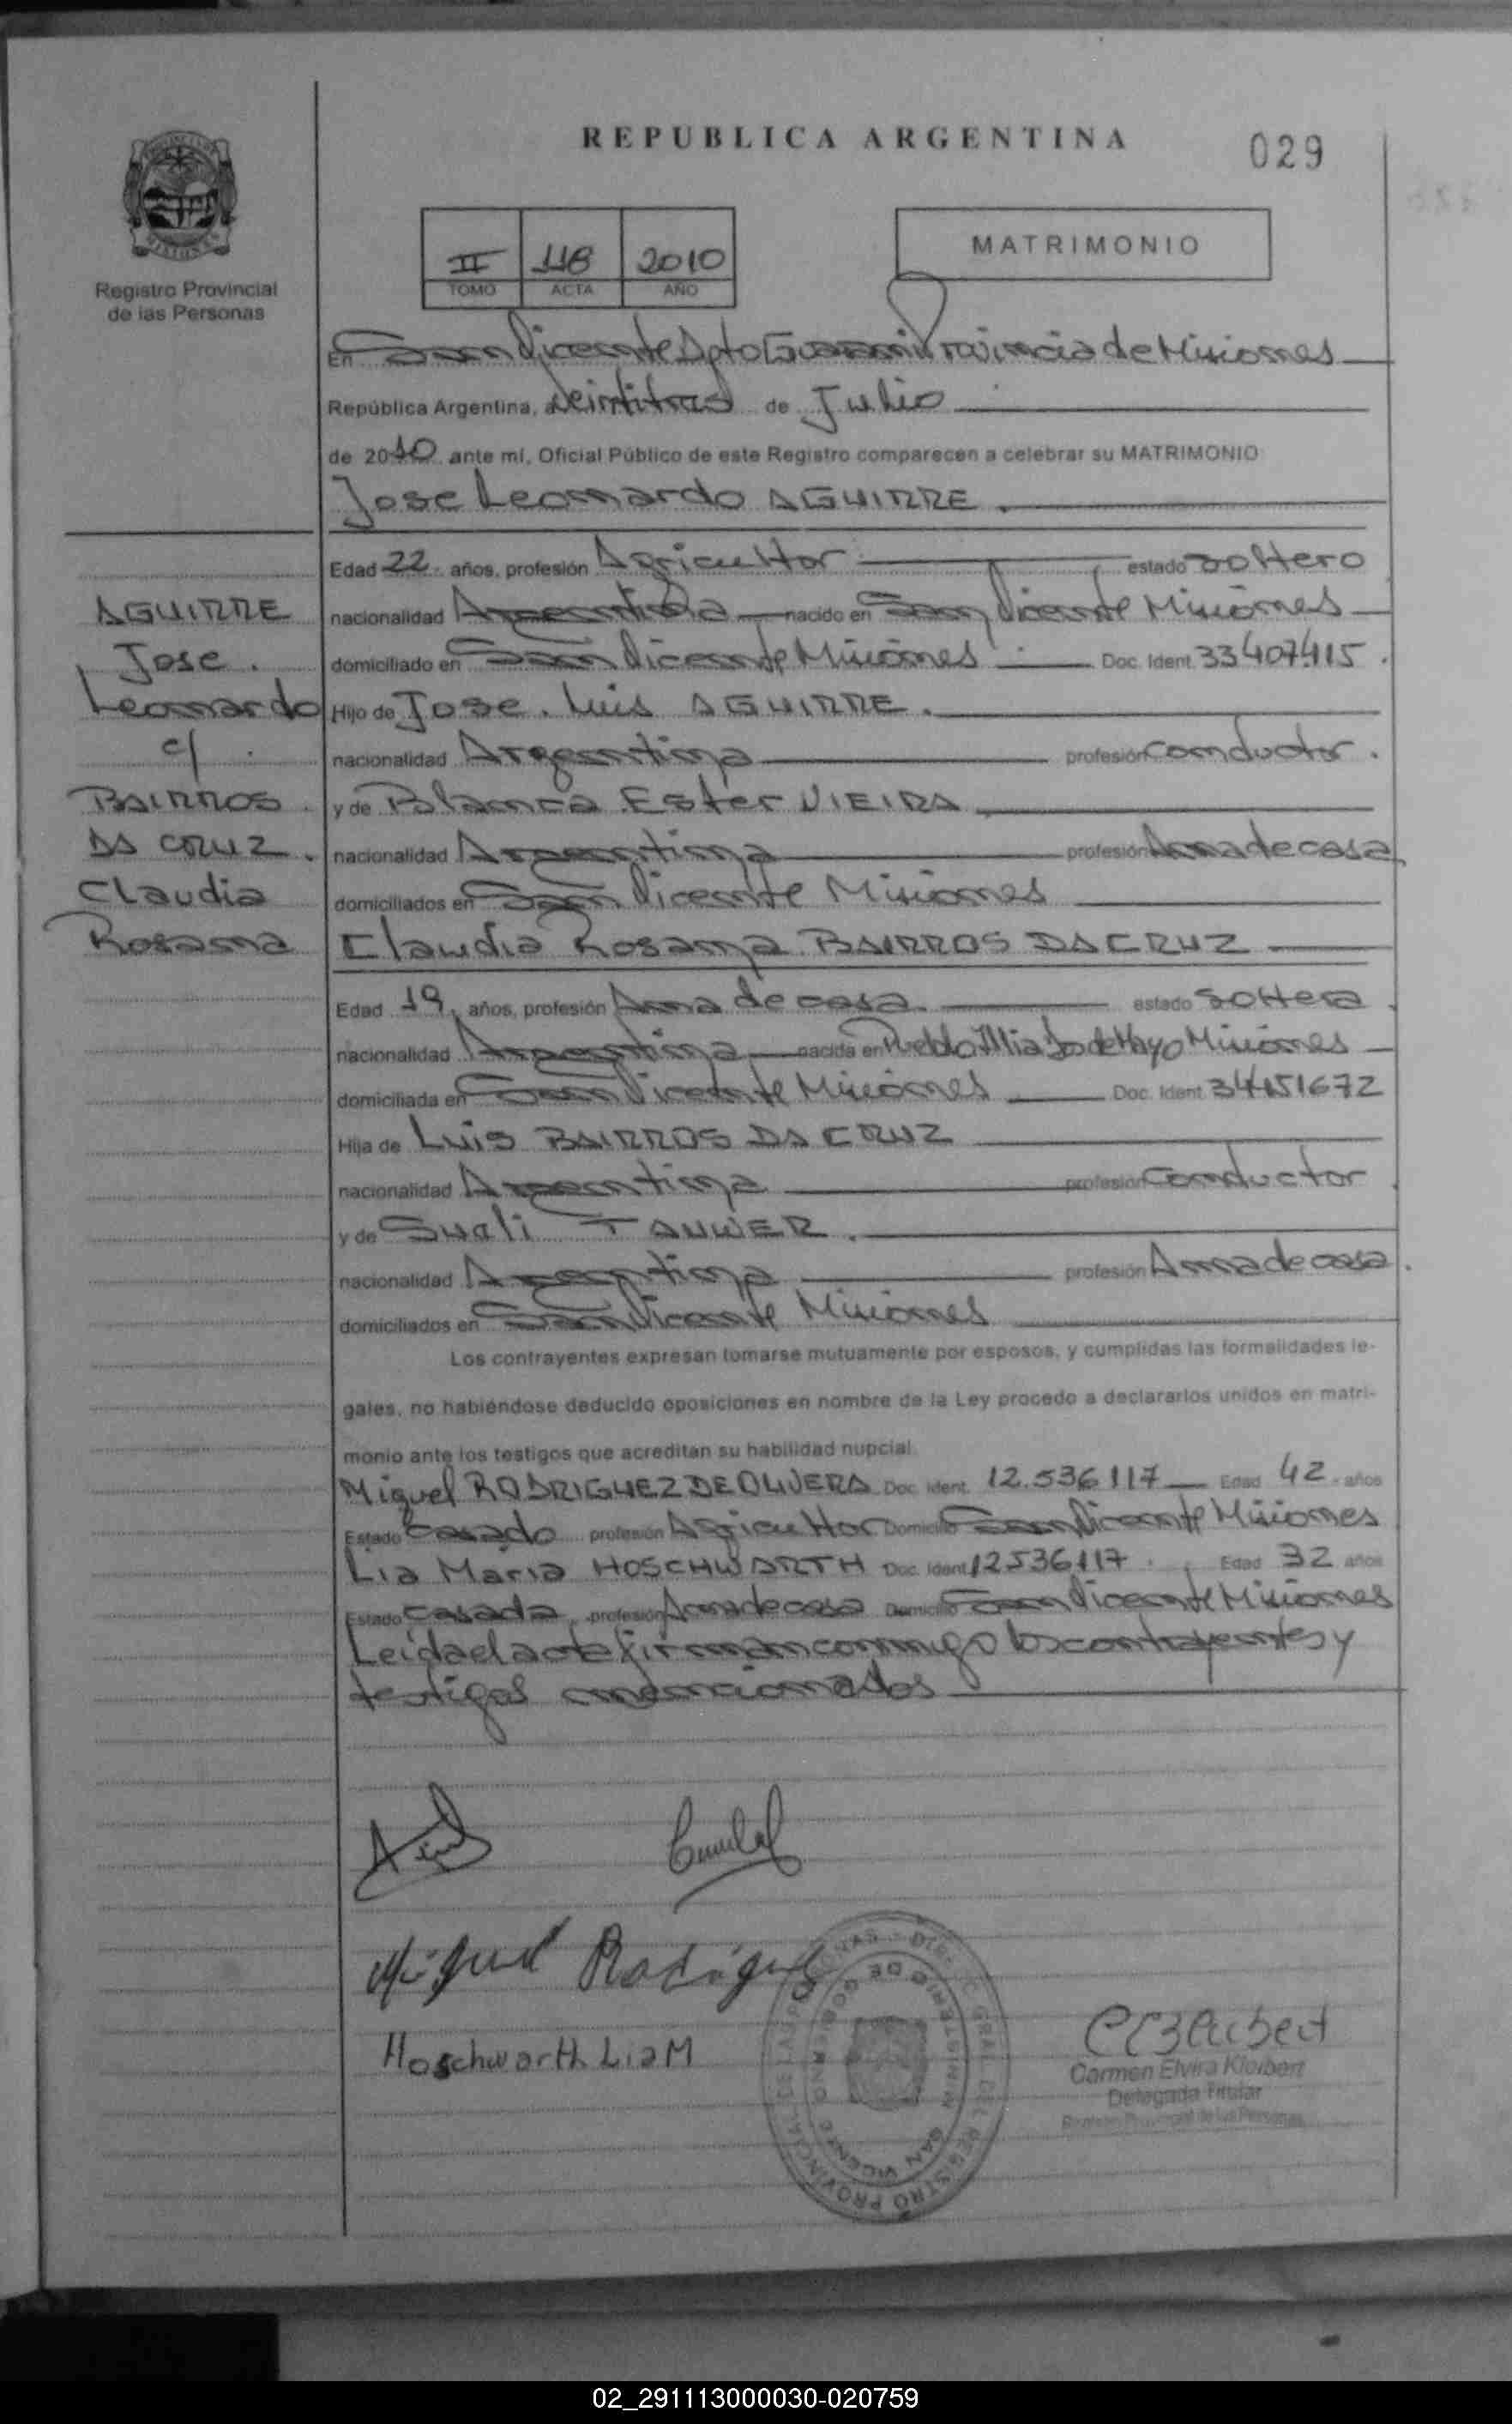 REPUBLICA ARGENTINA
029
Registro Provincial
de las Personas
II 118 2010
TOMO ACTA AÑO
MATRIMONIO
En San Vicente Dpto Guarani Provincia de Misiones
República Argentina, a Veintitres de Julio
de 2010 ante mí, Oficial Público de este Registro comparecen a celebrar su MATRIMONIO
Jose Leonardo AGUIRRE.
Edad 22 años, profesión Agricultor estado soltero
nacionalidad Argentina nacido en San Vicente Misiones
domiciliado en San Vicente Misiones Doc. Ident. 33407415.
Hijo de Jose Luis AGUIRRE.
nacionalidad Argentina profesión Conductor.
y de Blanca Ester VIEIRA
nacionalidad Argentina profesión Ama de casa
domiciliados en San Vicente Misiones
AGUIRRE
Jose.
Leonardo
c/
BAIRROS
DA CRUZ.
Claudia
Rosana
Claudia Rosana BAIRROS DA CRUZ
Edad 19 años, profesión Ama de casa estado Soltera
nacionalidad Argentina nacida en Pueblo Illia Dos de Mayo Misiones
domiciliada en San Vicente Misiones Doc. Ident. 34151672
Hija de Luis BAIRROS DA CRUZ
nacionalidad Argentina profesión Conductor
y de Suali TAUWER.
nacionalidad Argentina profesión Ama de casa.
domiciliados en San Vicente Misiones
Los contrayentes expresan tomarse mutuamente por esposos, y cumplidas las formalidades le-
gales, no habiéndose deducido oposiciones en nombre de la Ley procedo a declararlos unidos en matri-
monio ante los testigos que acreditan su habilidad nupcial.
Miguel RODRIGUEZ DE OLIVERA Doc. Ident. 12.536117 Edad 42 años
Estado Casado profesión Agricultor Domicilio San Vicente Misiones
Lia Maria HOSCHWARTH Doc. Ident. 12536117 Edad 32 años
Estado Casada profesión Ama de casa Domicilio San Vicente Misiones
Leida el acta firman conmigo los contrayentes y
testigos mencionados
Miguel Rodrigue
Hoschwarth Lia M
PROVINCIAL DE LAS PERSONAS - DIREC. GRAL. DEL REGISTRO
MINISTERIO DE GOBIERNO
SAN VICENTE
Carmen Elvira Kleibert
Delegada Titular
Registro Provincial de las Personas
02_291113000030-020759